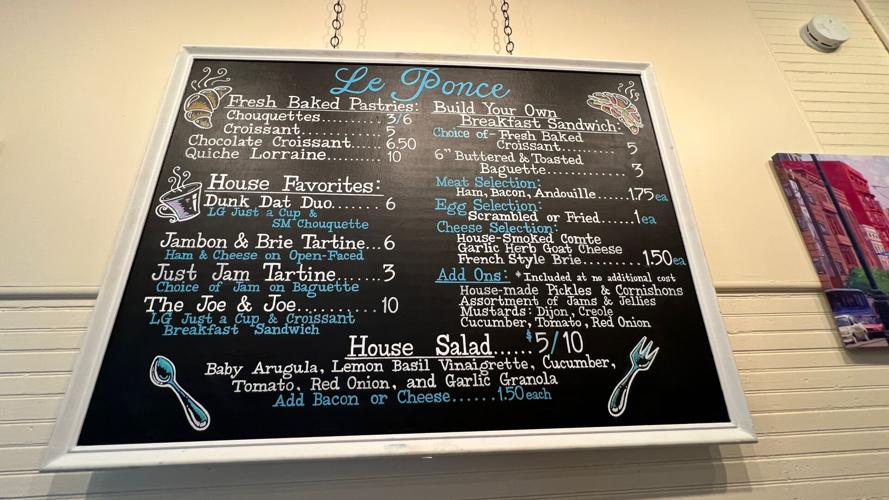 Le Ponce
Fresh Baked Pastries:
Chouquettes.......... 3/6
Croissant............. 5
Chocolate Croissant..... 6.50
Quiche Lorraine......... 10
House Favorites:
Dunk Dat Duo....... 6
LG Just a Cup &
SM Chouquette
Jambon & Brie Tartine... 6
Ham & Cheese on Open-Faced
Just Jam Tartine....... 3
Choice of Jam on Baguette
The Joe & Joe........... 10
LG Just a Cup & Croissant
Breakfast Sandwich
Build Your Own
Breakfast Sandwich:
Choice of - Fresh Baked
Croissant........... 5
6" Buttered & Toasted
Baguette........... 3
Meat Selection:
Ham, Bacon, Andouille...... 1.75 ea
Egg Selection:
Scrambled or Fried...... 1 ea
Cheese Selection:
House-Smoked Comte
Garlic Herb Goat Cheese
French Style Brie........... 1.50 ea
Add Ons: *Included at no additional cost
House-made Pickles & Cornishons
Assortment of Jams & Jellies
Mustards: Dijon, Creole
Cucumber, Tomato, Red Onion
House Salad...... $5/10
Baby Arugula, Lemon Basil Vinaigrette, Cucumber,
Tomato, Red Onion, and Garlic Granola
Add Bacon or Cheese...... 1.50 each